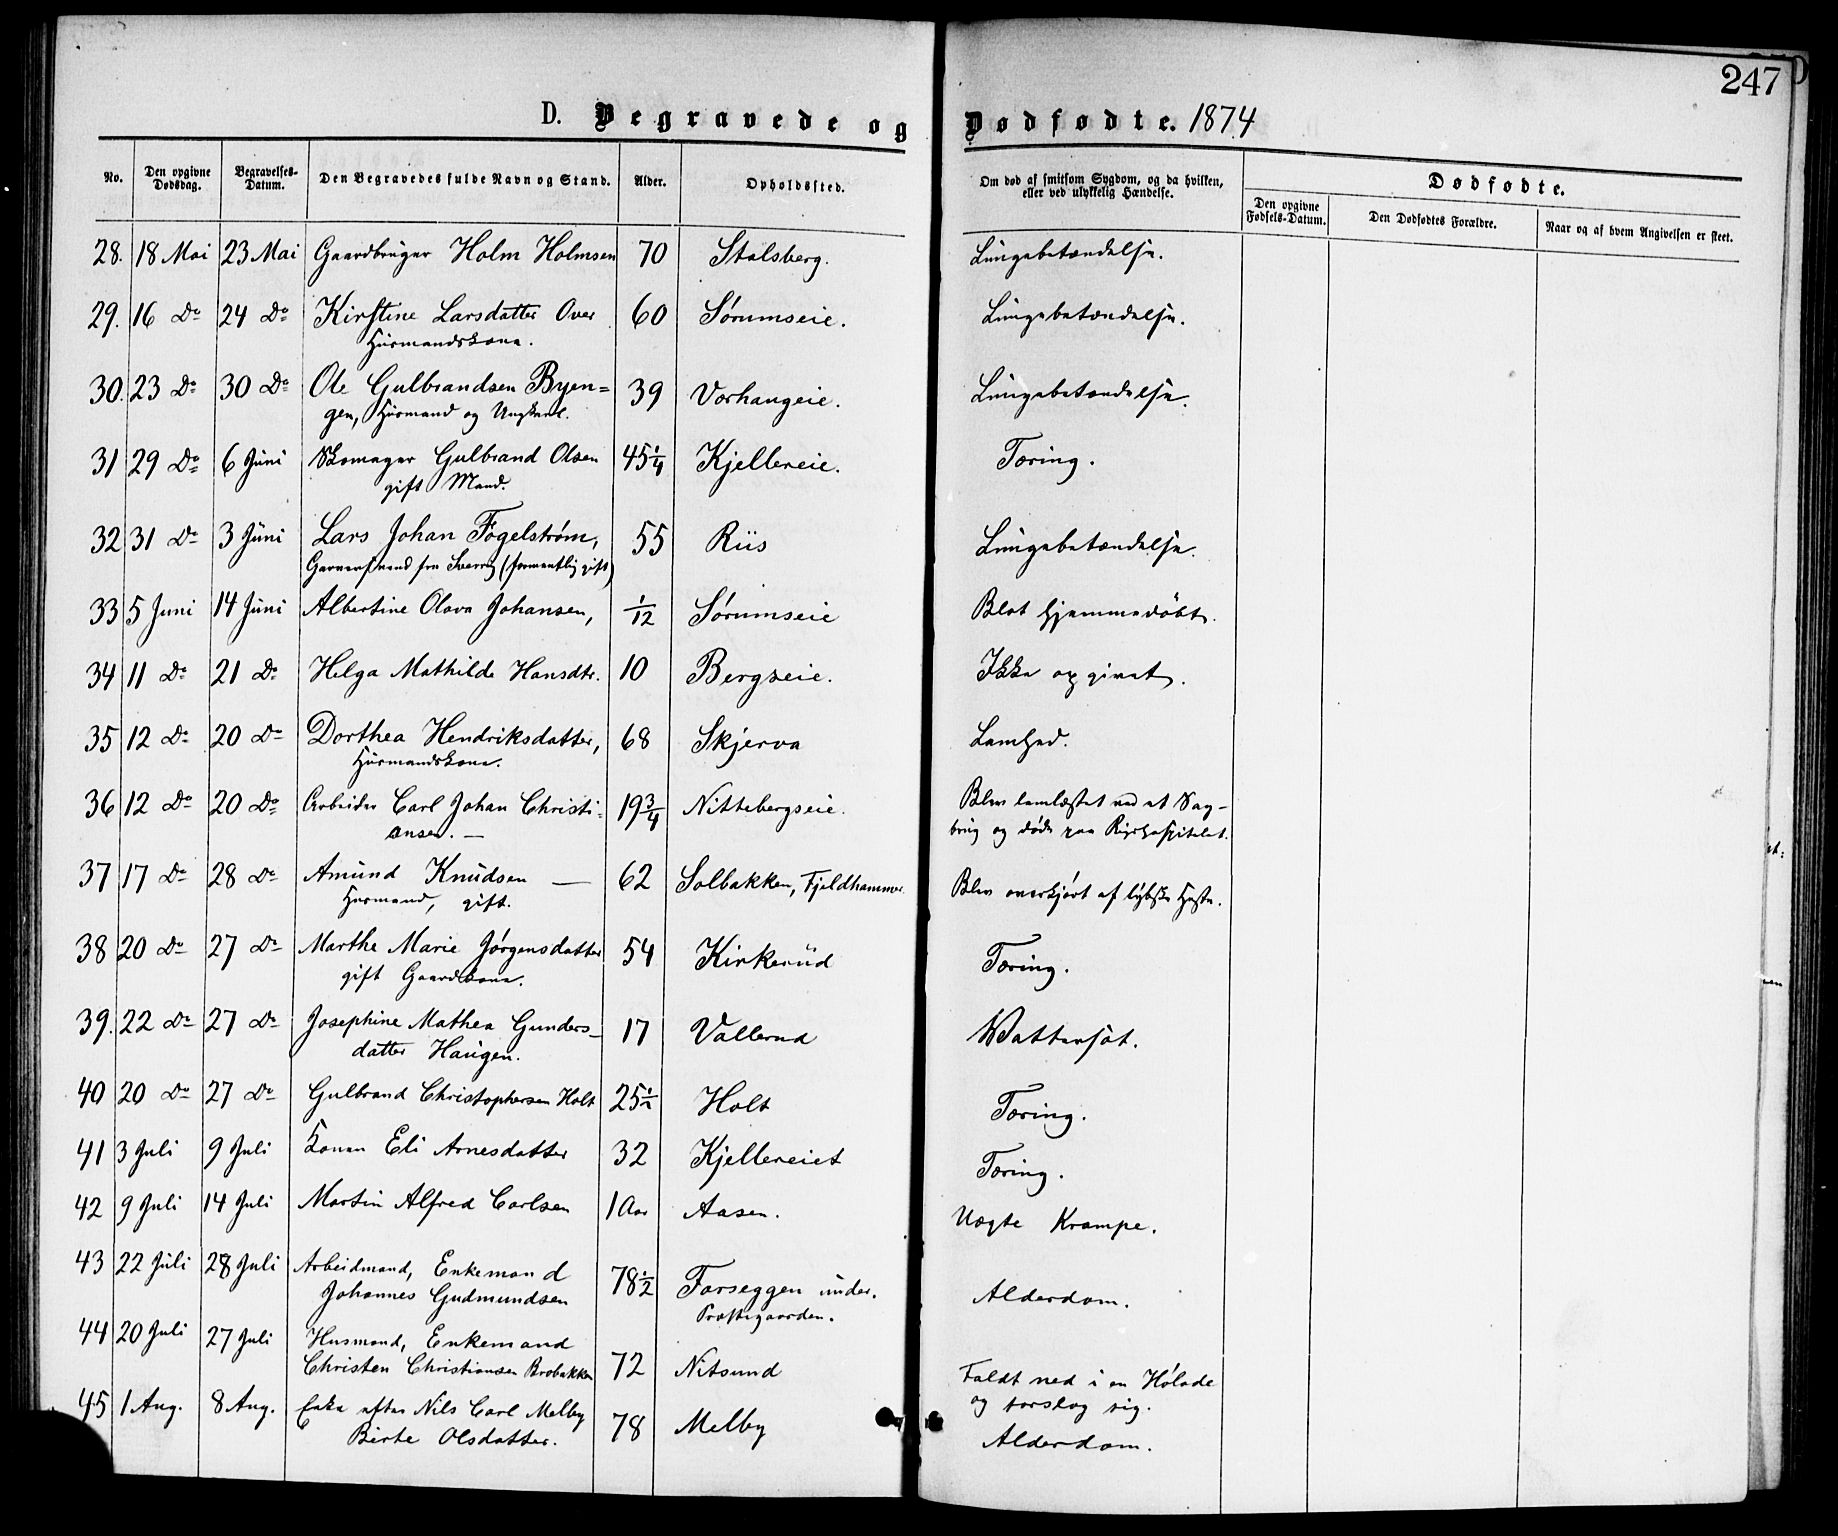 247
D. Begravede og Dødfødte. 1874
No. Den opgivne Dødsdag. Begravelses-Datum. Den Begravedes fulde Navn og Stand. Alder. Opholdssted. Om død af smitsom Sygdom, og da hvilken, eller ved ulykkelig Hændelse. Dødfødte.
Den opgivne Fødsels-Datum. Den Dødfødtes Forældre. Naar og af hvem Angivelsen er skeet.
28. 18 Mai 23 Mai Gaardbruger Holm Holmsen 70 Stalsberg. Lungebetændelse.
29. 16 Do 24 Do Kirstine Larsdatter Over 60 Sørumseie. Lungebetændelse.
Husmandskone.
30. 23 Do 30 Do Ole Gulbrandsen Byen= 39 Vorhaugeie. Lungebetændelse.
gen, Husmand og Ungkarl.
31 29 Do 6 Juni Skomager Gulbrand Olsen 45 1/4 Kjellereie. Tæring.
gift Mand.
32 31 Do 3 Juni Lars Johan Fogelstrøm, 55 Riis Lungebetændelse.
fra Sverrig (formentlig gift)
33 5 Juni 14 Juni Albertine Olava Johansen, 1/12 Sørumseie Blot hjemmedøbt.
34 11 Do 21 Do Helga Mathilde Hansdtr. 10 Bergseie. Ikke opgivet.
35 12 Do 20 Do Dorthea Hendriksdatter, 68 Skjerva Lamhed.
Husmandskone.
36 12 Do 20 Do Arbeider Carl Johan Christi= 19 3/4 Nittebergseie. Blev lemlæstet ved et Sag-
ansen. — brug og døde paa Rigshospitalet.
37 17 Do 28 Do Amund Knudsen — 62 Solbakken, Fjeldhammer Blev overkjørt af løbske Heste.
Husmand, gift.
38 20 Do 27 Do Marthe Marie Jørgensdatter 54 Kirkerud Tæring.
gift Gaardkone.
39. 22 Do 27 Do Josephine Mathea Gunders- 17 Vallerud Wattersot.
datter Haugen.
40 20 Do 27 Do Gulbrand Christophersen Holt 25 1/2 Holt Tæring.
41 3 Juli 9 Juli Konen Eli Arnesdatter 32 Kjellereiet Tæring.
42 9 Juli 14 Juli Martin Alfred Carlsen 1 Aar Aasen. Uægte Krampe.
43 22 Juli 28 Juli Arbeidmand, Enkemand 78 1/2 Farseggen under. Alderdom.
Johannes Gudmundsen Præstegaarden.
44 20 Juli 27 Juli Husmand, Enkemand
Christen Christiansen Brobakken 72 Nitsund Faldt ned i en Hølade
og forslog sig.
45 1 Aug. 8 Aug. Enke efter Nils Carl Melby 78 Melby Alderdom.
Birte Olsdatter.